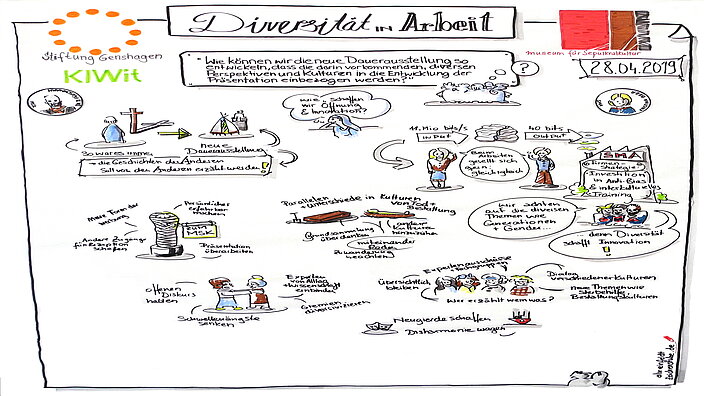 Diversität in Arbeit
Stiftung Genshagen
KIWit
Museum für Sepulkralkultur
28.04.2019
"Wie können wir die neue Dauerausstellung so
entwickeln, dass die darin vorkommenden, diversen
Perspektiven und Kulturen in die Entwicklung der
Präsentation einbezogen werden?"
?
Wie schaffen
wir Öffnung
& Innovation?
So war es immer
neue
Dauerausstellung
die Geschichten der Anderen
soll von den Anderen erzählt werden!
11 Mio bits/s
Input
40 bits
Output
Beim
Arbeiten
gesellt sich
gern
gleich zu gleich
SMA
Firmen-
Strategie
Investition
in Anti-Bias
& interkulturelles
Training
Wir achten
auf die diversen
Themen wie
Generationen
+ Gender...
denn Diversität
schafft Innovation
!
Persönlicher
erfahrbar
machen
Andere Zugänge
für Rezeption
schaffen
zum
MSK
Präsentation
überarbeiten
Parallelen
+ Unterschiede in Kulturen
von Tod +
Bestattung
Grundsammlung
überdenken
miteinander
reden
Zuwanderung
beachten
offenen
Diskurs
halten
Experten
von Alltag
+ Wissenschaft
einbinden
Schwellenängste
senken
Gremien
diversifizieren
Übersichtlich
bleiben
Wer erzählt wem was?
Dialog
verschiedener Kulturen
neue Themen wie
Sterbehilfe,
Bestattungskulturen
Neugierde schaffen
Disharmonie wagen